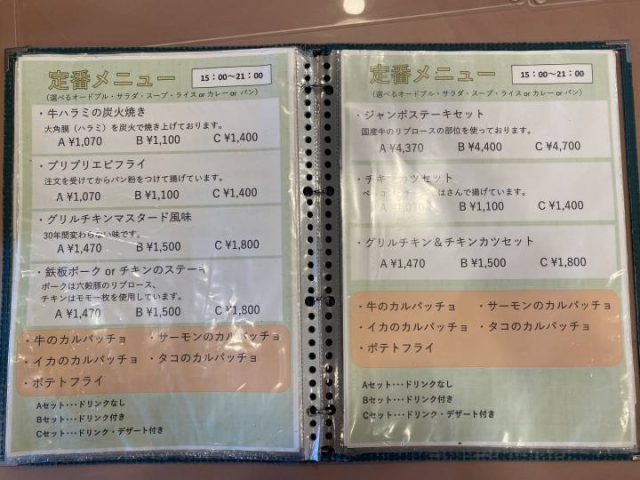 定番メニュー
15：00～21：00
（選べるオードブル・サラダ・スープ・ライス or カレー or パン）
・牛ハラミの炭火焼き
大角膜（ハラミ）を炭火で焼き上げております。
A ¥1,070 B ¥1,100 C ¥1,400
・プリプリエビフライ
注文を受けてからパン粉をつけて揚げています。
A ¥1,070 B ¥1,100 C ¥1,400
・グリルチキンマスタード風味
30年間変わらない味です。
A ¥1,470 B ¥1,500 C ¥1,800
・鉄板ポーク or チキンのステーキ
ポークは六穀豚のリブロース、
チキンはモモ一枚を使用しています。
A ¥1,470 B ¥1,500 C ¥1,800
・牛のカルパッチョ ・サーモンのカルパッチョ
・イカのカルパッチョ ・タコのカルパッチョ
・ポテトフライ
Aセット･･･ドリンクなし
Bセット･･･ドリンク付き
Cセット･･･ドリンク・デザート付き
定番メニュー
15：00～21：00
（選べるオードブル・サラダ・スープ・ライス or カレー or パン）
・ジャンボステーキセット
国産牛のリブロースの部位を使っております。
A ¥4,370 B ¥4,400 C ¥4,700
・チキンカツセット
はさんで揚げています。
B ¥1,100 C ¥1,400
・グリルチキン＆チキンカツセット
A ¥1,470 B ¥1,500 C ¥1,800
・牛のカルパッチョ ・サーモンのカルパッチョ
・イカのカルパッチョ ・タコのカルパッチョ
・ポテトフライ
Aセット･･･ドリンクなし
Bセット･･･ドリンク付き
Cセット･･･ドリンク・デザート付き